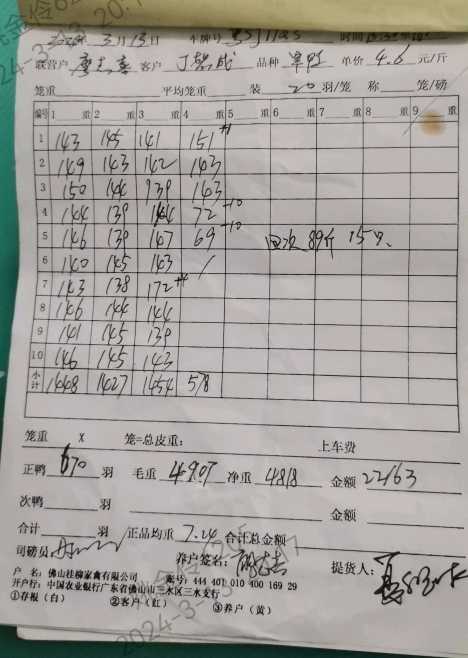 2024年3月13日 车牌号
联营户 客户 品种 单价 4.6 元/斤
笼重 平均笼重 装 20 羽/笼 称 笼/磅
编号 1 重 2 重 3 重 4 重 5 重 6 重 7 重 8 重 9 重
1 143 145 141 151 +1
2 149 143 142 143
3 150 144 139 143
4 144 139 144 72 -10
5 146 139 147 69 -10 回次 89斤 15只
6 140 145 143 /
7 143 138 172 +4
8 146 144 144
9 141 145 139
10 146 145 143
小计 1448 1427 1454 578
笼重 X 笼=总皮重: 上车费
正鸭 670 羽 毛重 4907 净重 4818 金额 22163
次鸭 羽 金额
合计 羽 正品均重 7.24 合计总金额
司磅员 养户签名: 提货人:
户 名: 佛山桂柳家禽有限公司 账号: 444 401 010 400 169 29
开户行: 中国农业银行广东省佛山市三水区三水支行
①存根(白) ②客户(红) ③养户(黄)